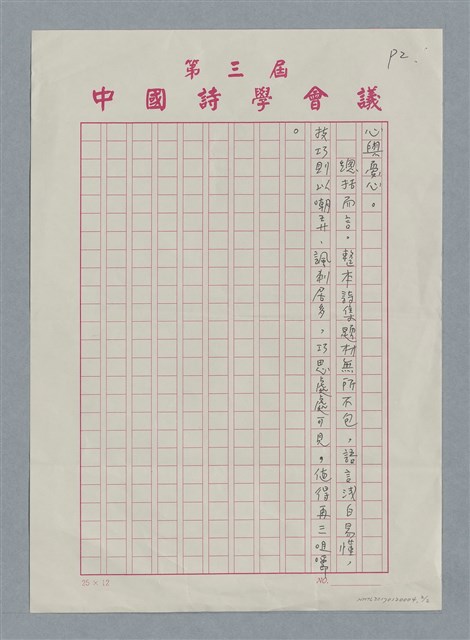 P2.
第三屆
中國詩學會議
心與憂心。
總括而言。整本詩集題材無所不包，語言淺白易懂，
技巧則以嘲弄、諷刺居多，巧思處處可見。值得再三咀嚼
。
25×12
NO.